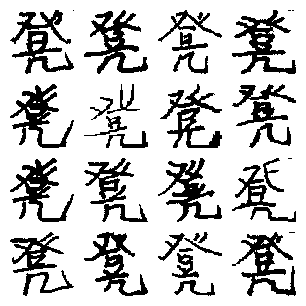 凳凳凳凳
凳凳凳凳
凳凳凳凳
凳凳凳凳